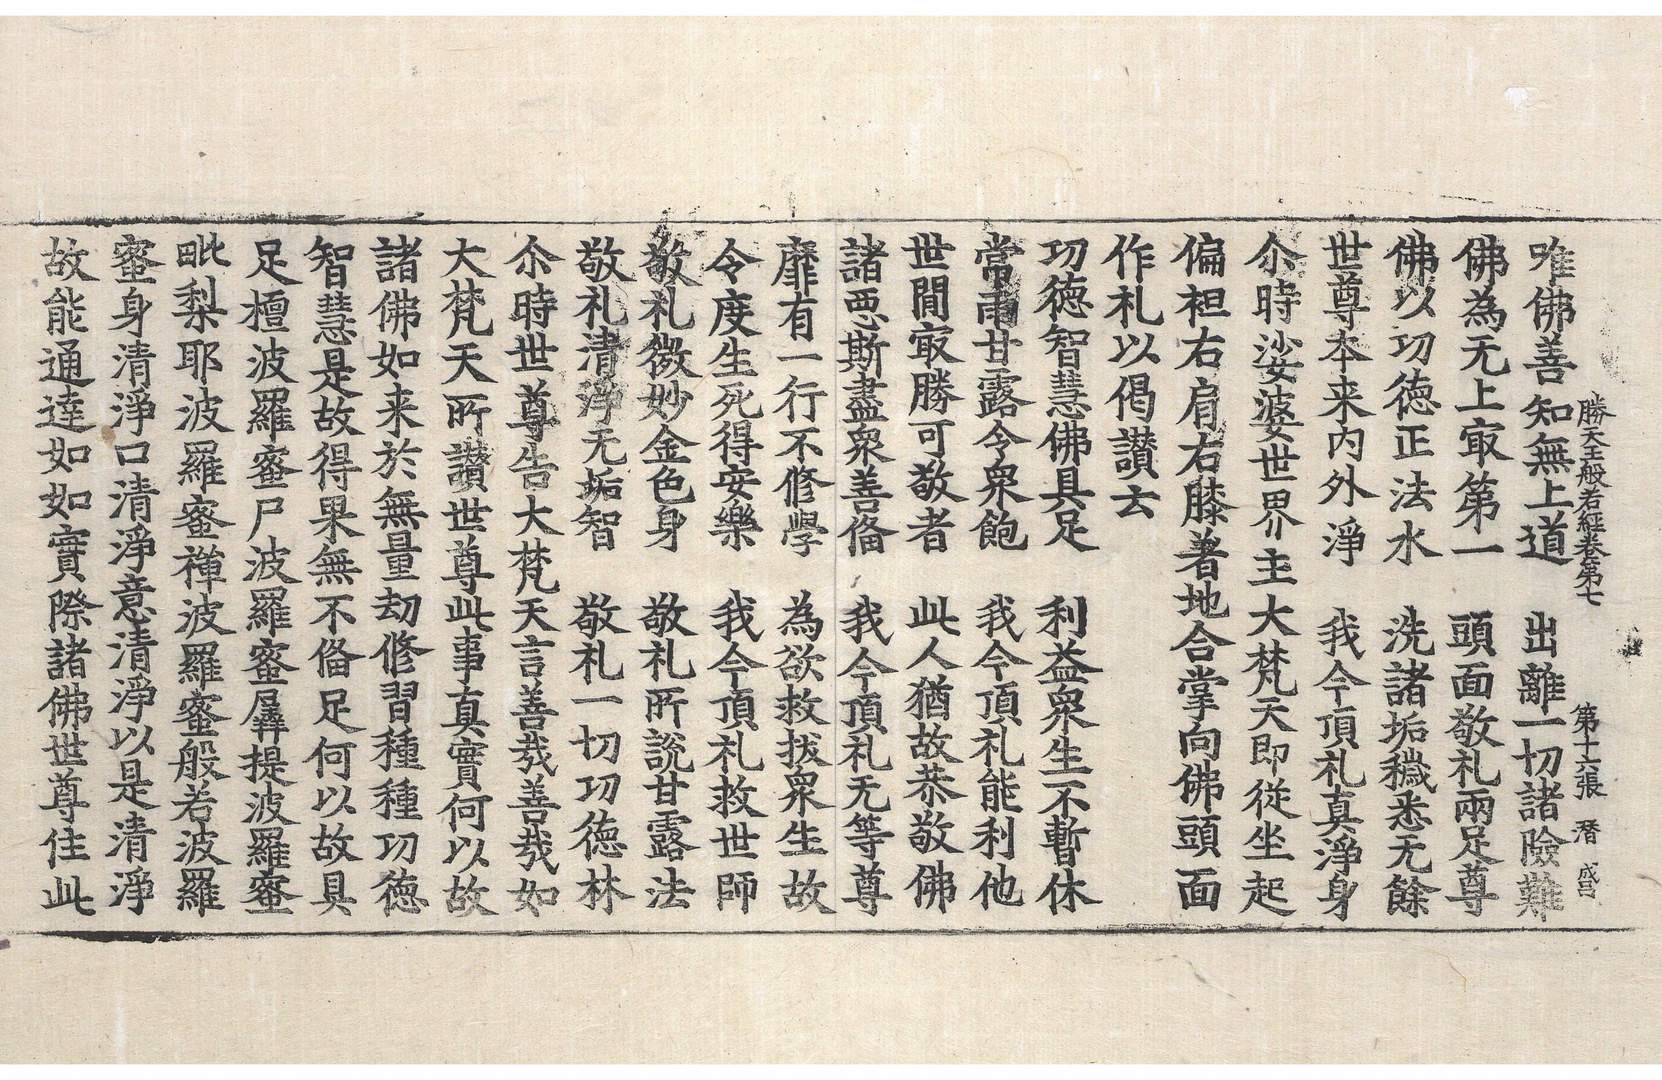 勝天王般若經卷第七 第十六張 㬱 成昌
唯佛善知無上道 出離一切諸險難
佛為无上㝡第一 頭面敬礼兩足尊
佛以功德正法水 洗諸垢穢悉无餘
世尊夲来内外淨 我今頂礼真淨身
尒時娑婆世界主大梵天即従坐起
偏袒右肩右膝著地合掌向佛頭面
作礼以偈讃去
功德智慧佛具足 利益衆生不暫休
常雨甘露令衆飽 我今頂礼能利他
世間㝡勝可敬者 此人猶故恭敬佛
諸惡斯盡衆善俻 我今頂礼无等尊
靡有一行不修學 為欲救拔衆生故
令度生死得安樂 我今頂礼救世師
敬礼微妙金色身 敬礼所説甘露法
敬礼清淨无垢智 敬礼一切功德林
尒時世尊告大梵天言善㢤善㢤如
大梵天所讃世尊此事真實何以故
諸佛如来於無量劫修習種種功德
智慧是故得果無不俻足何以故具
足檀波羅蜜尸波羅蜜羼提波羅蜜
毗梨耶波羅蜜禪波羅蜜般若波羅
蜜身清淨口清淨意清淨以是清淨
故能通達如如實際諸佛世尊住此